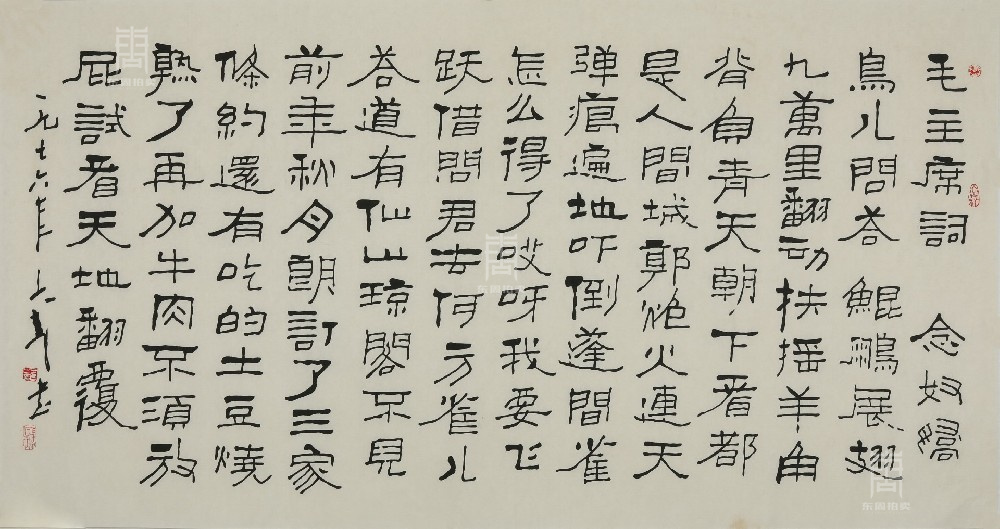 毛主席詞 念奴嬌
鳥儿問荅 鯤鵬展翅
九萬里翻动扶摇羊角
背負青天朝下看都
是人間城郭炮火連天
弹痕遍地吓倒蓬間雀
怎么得了哎呀我要飞
跃借問君去何方雀儿
荅道有仙山琼閣不見
前年秋月朗訂了三家
條約還有吃的土豆燒
熟了再加牛肉不須放
屁試看天地翻覆
一九七六年
东周拍卖
东周拍卖
东周拍卖